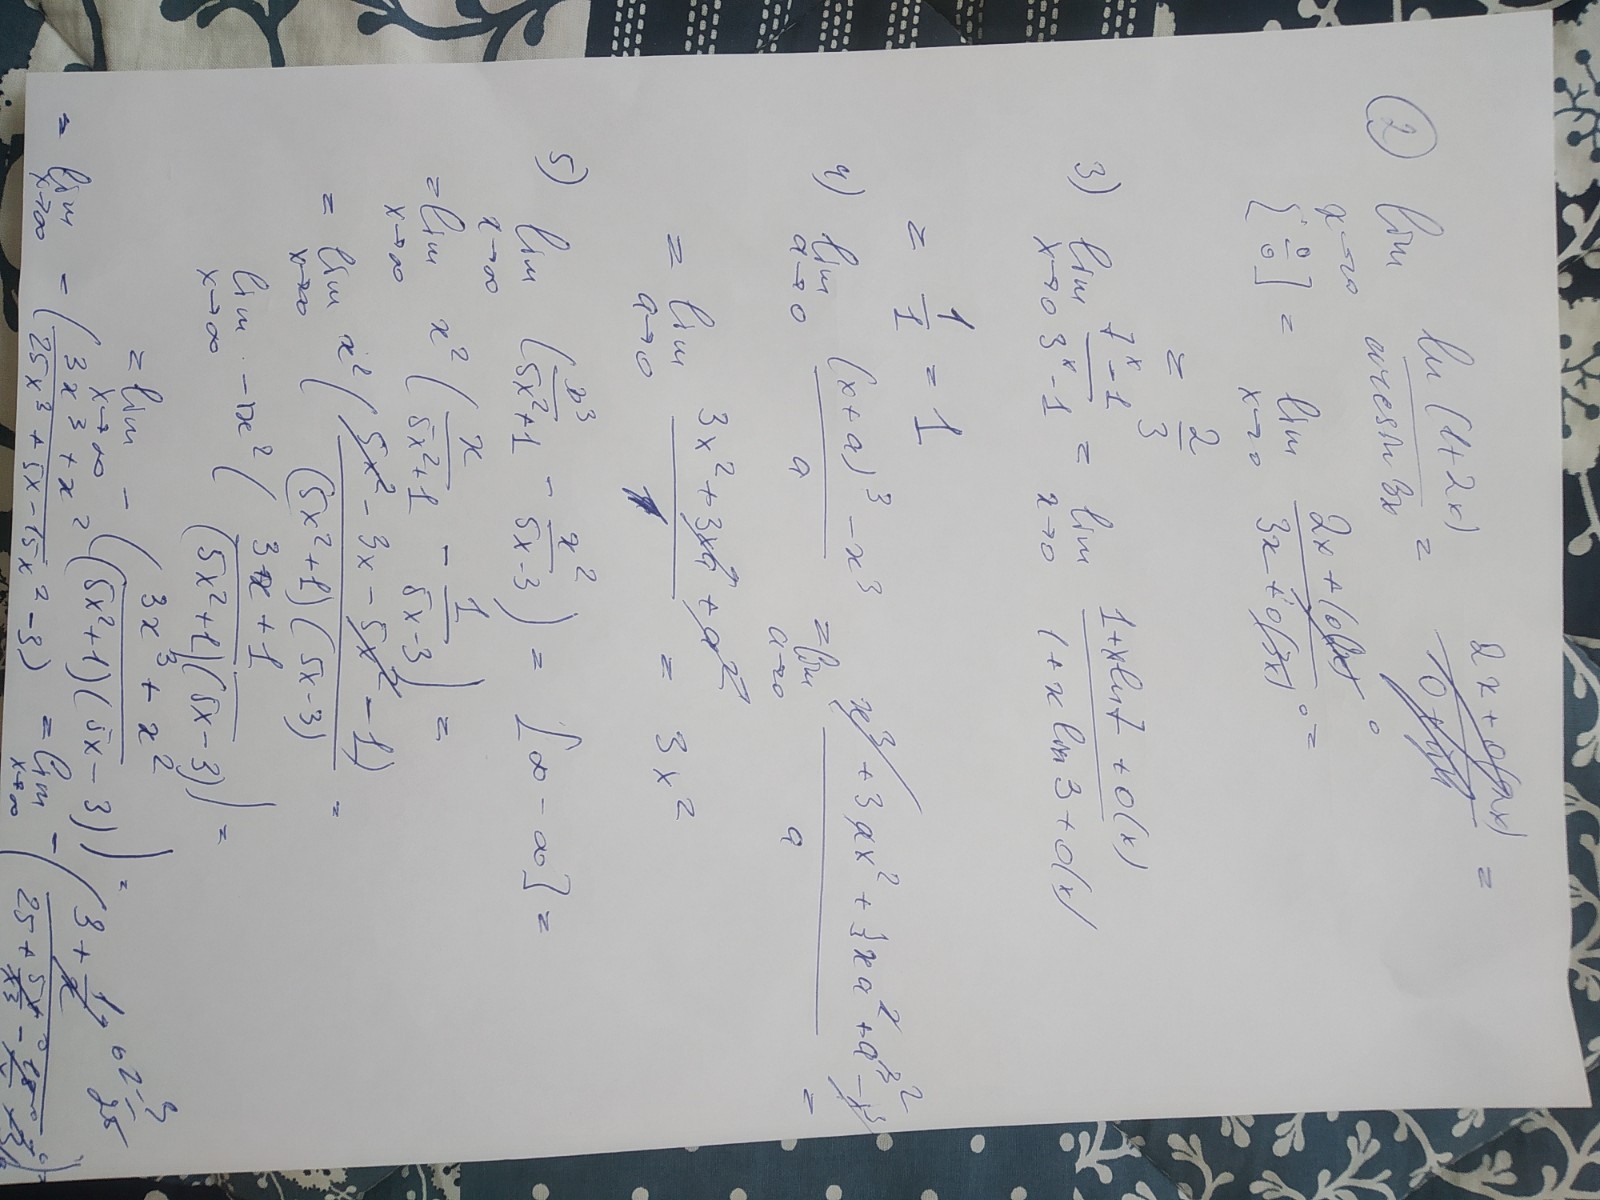 ② lim x→0 ln(1+2x) / arcsin 3x =
[0/0] = lim x→0 2x + o(2x) / 3x + o(3x) =
= 2/3
3) lim x→0 7^x - 1 / 3^x - 1 = lim x→0 1 + x ln 7 + o(x) / 1 + x ln 3 + o(x)
= 1/1 = 1
4) lim a→0 (x+a)³ - x³ / a = lim a→0 x³ + 3ax² + 3xa² + a³ - x³ / a =
= lim a→0 3x² + 3xa + a² / 1 = 3x²
5) lim x→∞ (x³/5x²+1 - x²/5x-3) = [∞ - ∞] =
= lim x→∞ x² (x/5x²+1 - 1/5x-3) =
= lim x→∞ x² (5x² - 3x - 5x² - 1 / (5x²+1)(5x-3)) =
lim x→∞ -x² (3x + 1 / (5x²+1)(5x-3)) =
= lim x→∞ - (3x³ + x² / (5x²+1)(5x-3)) =
= lim x→∞ - (3x³ + x² / 25x³ + 5x - 15x² - 3) = lim x→∞ - (3 + 1/x